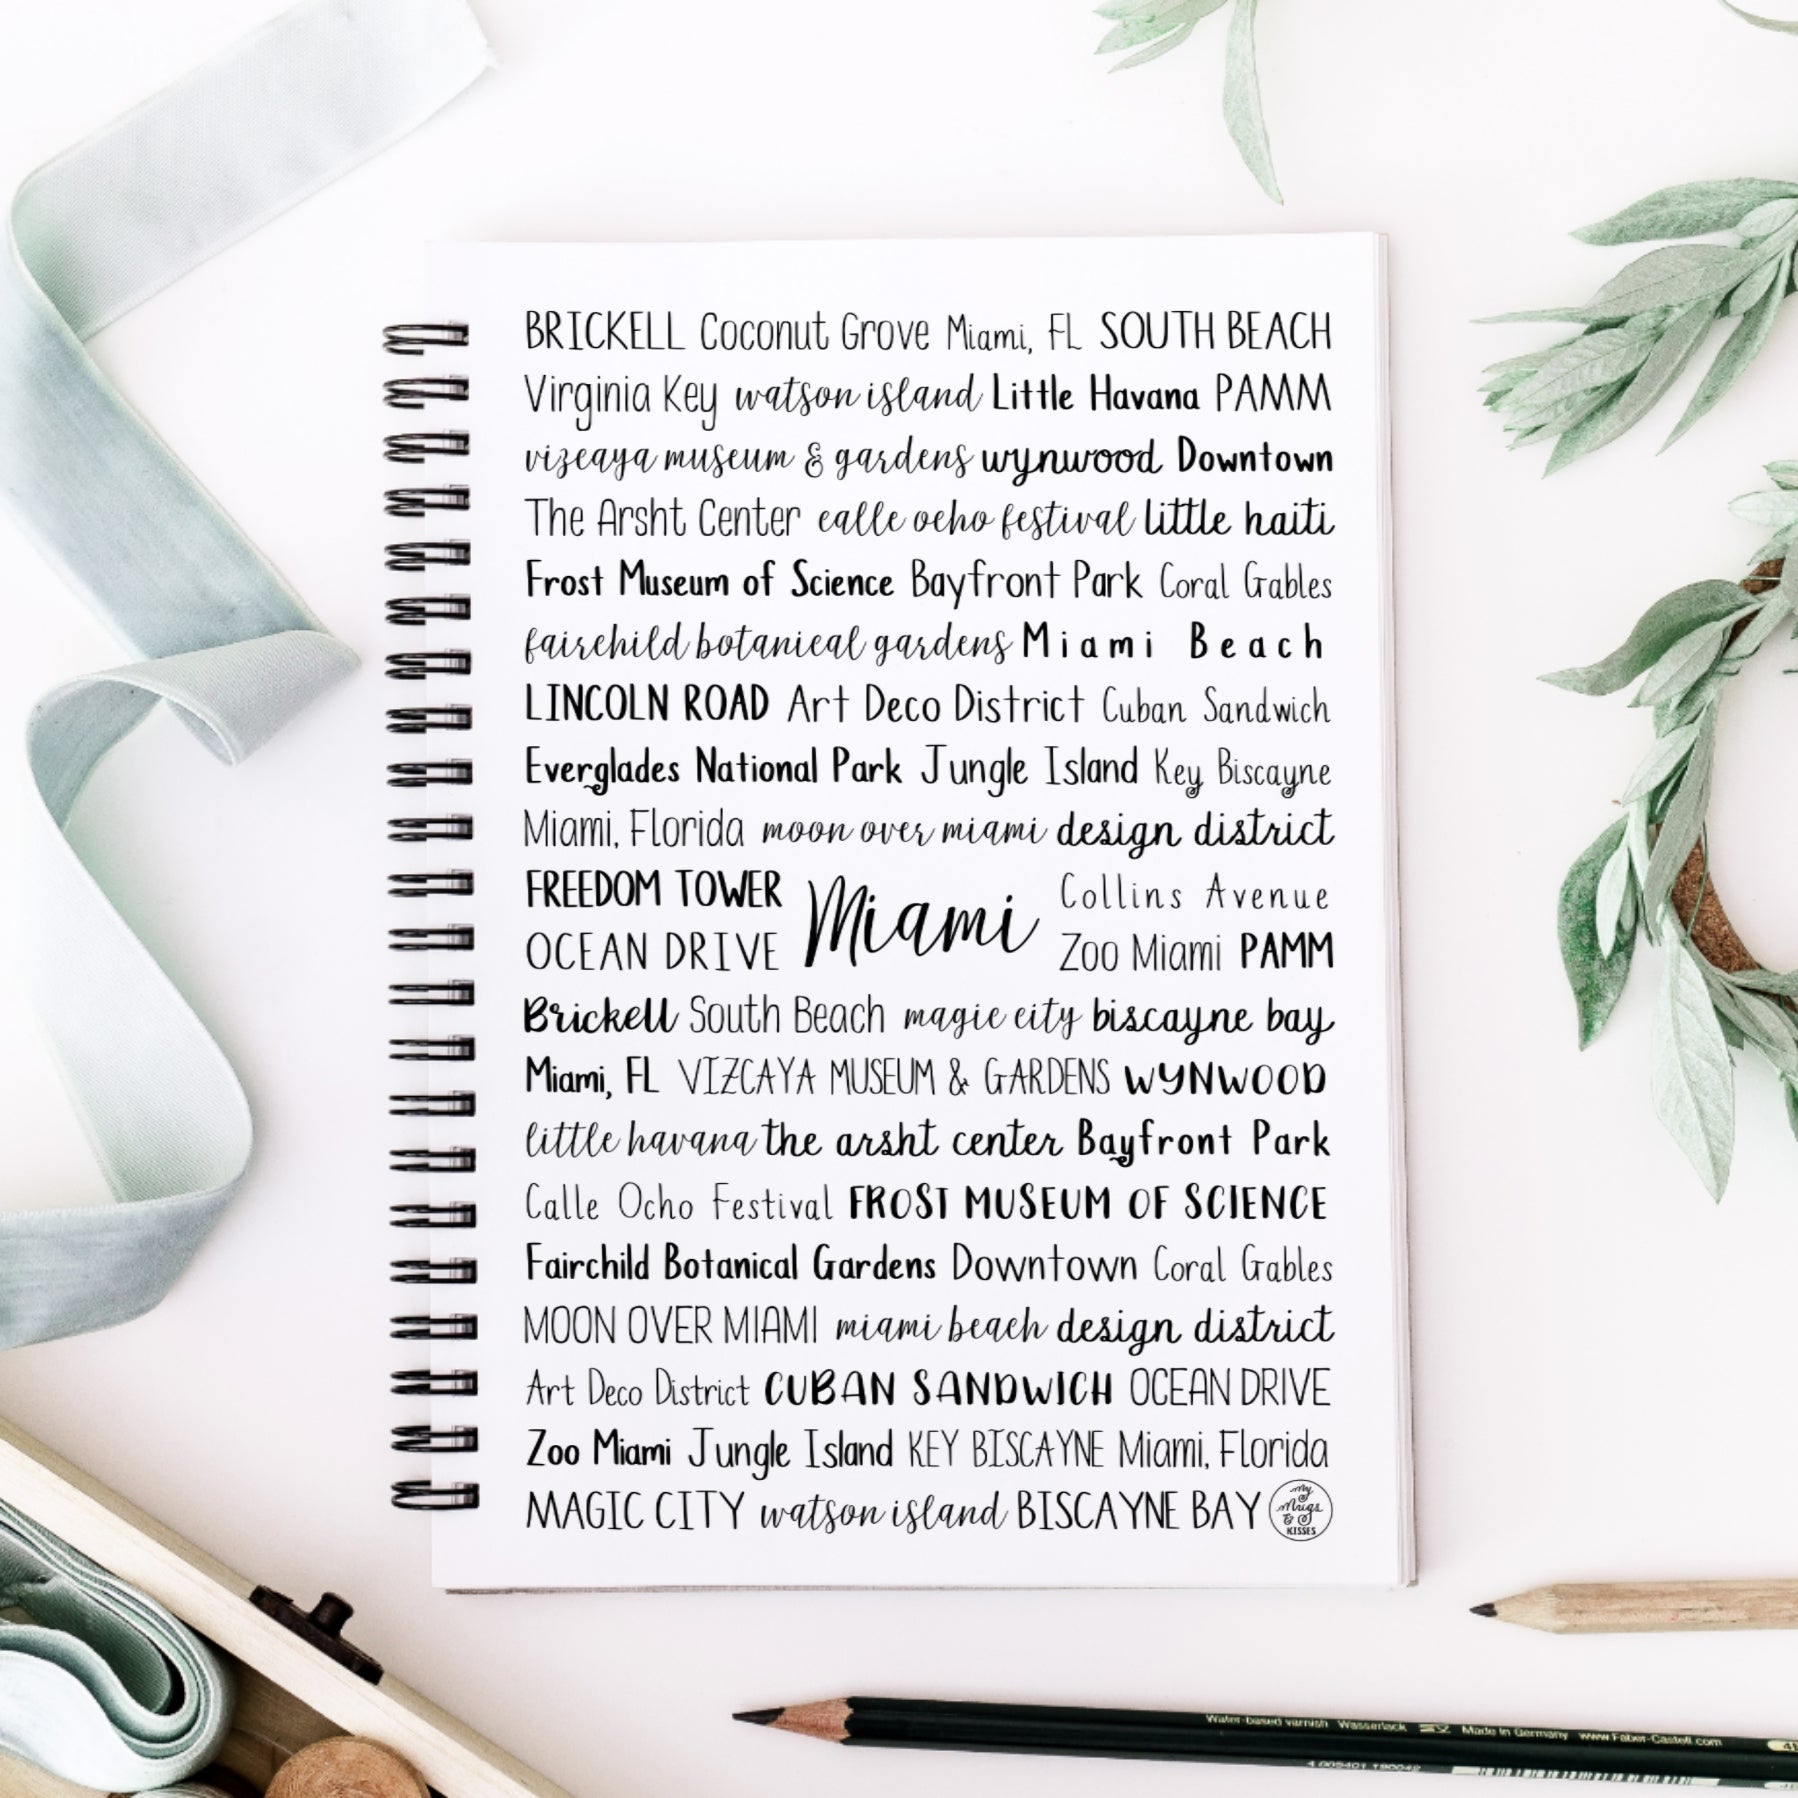 BRICKELL Coconut Grove Miami, FL SOUTH BEACH
Virginia Key watson island Little Havana PAMM
vizcaya museum & gardens wynwood Downtown
The Arsht Center calle ocho festival little haiti
Frost Museum of Science Bayfront Park Coral Gables
fairchild botanical gardens Miami Beach
LINCOLN ROAD Art Deco District Cuban Sandwich
Everglades National Park Jungle Island Key Biscayne
Miami, Florida moon over miami design district
FREEDOM TOWER Miami Collins Avenue
OCEAN DRIVE Zoo Miami PAMM
Brickell South Beach magic city biscayne bay
Miami, FL VIZCAYA MUSEUM & GARDENS WYNWOOD
little havana the arsht center Bayfront Park
Calle Ocho Festival FROST MUSEUM OF SCIENCE
Fairchild Botanical Gardens Downtown Coral Gables
MOON OVER MIAMI miami beach design district
Art Deco District CUBAN SANDWICH OCEAN DRIVE
Zoo Miami Jungle Island KEY BISCAYNE Miami, Florida
MAGIC CITY watson island BISCAYNE BAY
My
Mugs
&
KISSES
Water-based varnish Wasserlack Made in Germany www.Faber-Castell.com
4 005401 190042